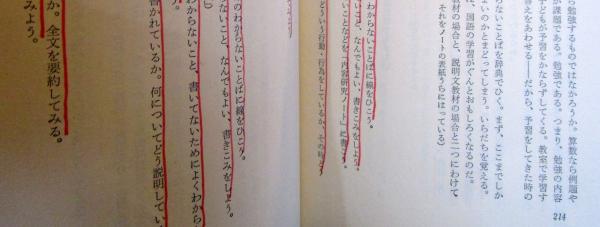 ら勉強するものではなかろうか。算数なら例題や
が課題である。勉強である。つまり、勉強の内容
子どもが予習をかならずしてくる。教室で学習す
答えをあわせる──だから、予習をしてきた時の
らないことばを辞典でひく。まず、ここまでしか
よいのかとまどってしまう。いらだちを覚える。
は、国語の学習がぐんとおもしろくなるのだ。
教材の場合と、説明文教材の場合と二つにわけて
それをノートの表紙うらにはっている）
214
わからないことばに線をひこう。
ないこと、なんでもよい、書きこみをしよう。
ないことなどを「内容研究ノート」に書こう。
どういう行動・行為をしているか、その時
のわからないことばに線をひこう。
ないこと、なんでもよい、書きこみをしよう。
わからないこと、書いてないためによくわから
う。
書かれているか。何についてどう説明してい
か。全文を要約してみる。
みよう。